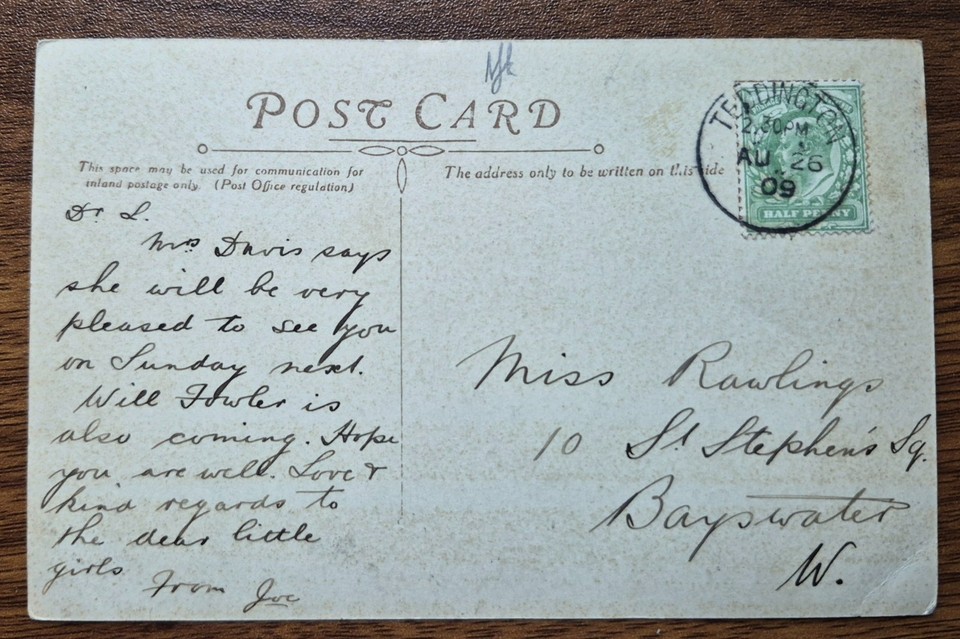 POST CARD
This space may be used for communication for
inland postage only. (Post Office regulation)
The address only to be written on this side
TEDDINGTON
2.30PM
AU 26
09
HALF PENNY
Dr L.
Mrs Davis says
she will be very
pleased to see you
on Sunday next.
Will Fowler is
also coming. Hope
you are well. Love &
kind regards to
the dear little
girls
From Joe
Miss Rawlings
10 St Stephen's Sq.
Bayswater
W.